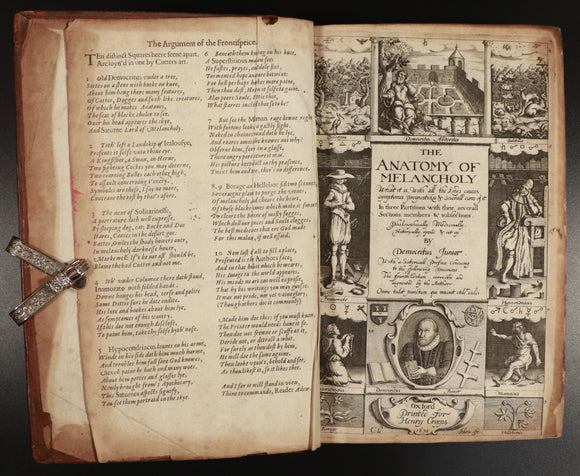 The Argument of the Frontispiece.
TEn distinct Squares heere seene apart,
Are ioyn'd in one by Cutters art.
1 Old Democritus vnder a tree,
Sittes on a stone with booke on knee,
About him hang there many features,
Of Cattes, Dogges and such like creatures,
Of which he makes Anatomy,
The seat of blacke choler to see.
Ouer his head appeares the skye,
And Saturne Lord of Melancholy.
2 To th' left a Landskip of Iealousye,
Presents it selfe vnto thine eye.
A Kingfisher, a Swan, an Herne,
Two fighting Cockes you may discerne,
Two roaring Bulles each other hye,
To assault concerning Venery.
Symboles are these, I say no more,
Conceaue the rest by that's afore.
3 The next of Solitarinesse,
A portraiture doth well expresse,
By sleeping dog, cat: Bucke and Doe
Hares, Conies in the desart goe:
Battes, Owles the shady bowers ouer,
In melancholy darknesse houer,
Marke well: If't be not as't should be,
Blame the bad Cutter and not me.
4 Ith' vnder Columne there doth stand,
Inamorato with folded hand.
Downe hanges his head, terse and polite
Some Dittie sure he doth endite.
His lute and bookes about him lye,
As symptomes of his vanity.
If this doe not enough disclose,
To paint him, take thy selfe by th' nose.
5 Hypocondriacus leanes on his arme,
Winde in his side doth him much harme,
And troubles him full sore God knowes,
Much paine he hath and many woes.
About him pottes and glasses lye,
Newly brought from's Apothecary,
This Saturnes aspects signify,
You see them portraid in the skye.
6 Beneath them kneeling on his knee,
A Superstitious man you see:
He fastes, prayes, on's Idole fixt,
Tormented hope and feare betwixt:
For hell perhaps he takes more paine,
Then thou dost, Heauen it selfe to gaine.
Alas poore Soule, I pitie thee,
What starres incline thee so to be?
7 But see the Madman rage downe right
With furious lookes, a gastly sight.
Naked in chaines bound doth he lye,
And roares amaine he knowes not why?
Obserue him, for as in a glasse,
Thine angry portraiture it was.
His picture keepe still in thy presence,
Twixt him and thee, ther's no difference.
8. 9 Borage and Hellebor fill two scenes,
Soueraigne plants to purge the veines,
Of melancholy, and cheare the heart,
Of those blacke fumes which make it smart.
To cleare the Braine of misty fogges,
Which dull our senses and Soule clogges.
The best medicine that ere God made
For this malady, if well assaid.
10 Now last of all to fill a place,
Presented is the Authors face;
And in that habit which he weares,
His Image to the world appeares.
His minde no art can well expresse,
That by his writings you may guesse.
It was not pride, nor yet vaineglory,
(Though others doe it commonly)
Made him doe this: if you must know,
The Printer would needs haue it so.
Then doe not frowne or scoffe at it,
Deride not, or detract a whit.
For surely as thou dost by him,
He will doe the same againe.
Then looke vpon't, behold and see,
As thou lik'st it, so it likes thee.
And I for it will stand in view,
Thine to commande, Reader Adew.
Democritus Abderites
THE
ANATOMY OF
MELANCHOLY
What it is, With all the kinds causes
symptomes prognostickes & seuerall cures of it
In three Partitions with their severall
Sections members & subsections
Philosophically, Medicinally,
Historically, opened & cut up
BY
Democritus Junior
With a Satyricall Preface Conducing
to the following Discourse
Omne tulit punctum qui miscuit utile dulci
Inamorato
Hypocondriacus
Democritus Junior
Maniacus
Borago
Helleborus
Oxford
Printed For
Henry Cripps